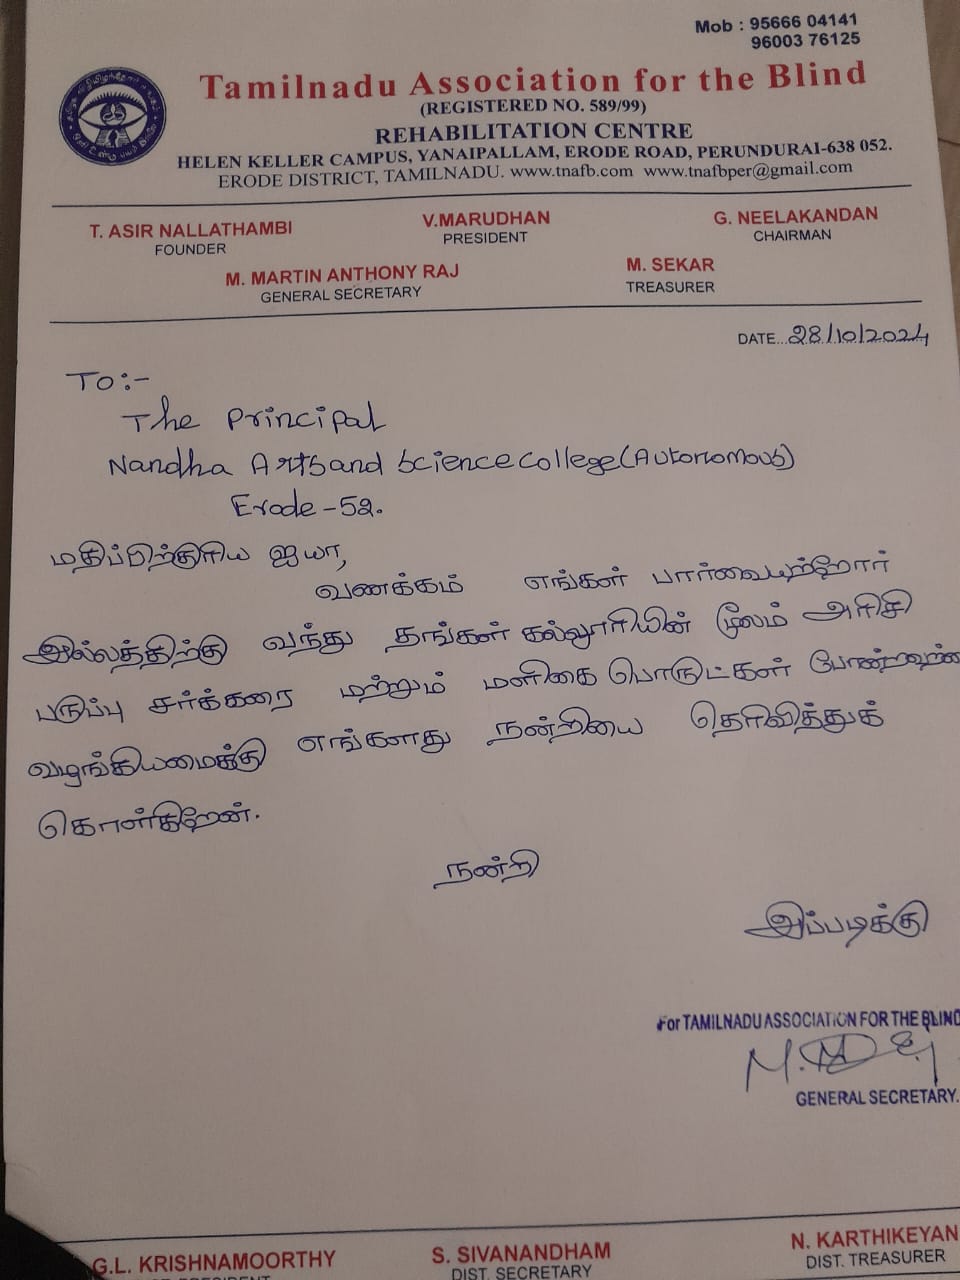 Mob : 95666 04141
96003 76125
Tamilnadu Association for the Blind
(REGISTERED NO. 589/99)
REHABILITATION CENTRE
HELEN KELLER CAMPUS, YANAIPALLAM, ERODE ROAD, PERUNDURAI-638 052.
ERODE DISTRICT, TAMILNADU. www.tnafb.com www.tnafbper@gmail.com
T. ASIR NALLATHAMBI
FOUNDER
V.MARUDHAN
PRESIDENT
G. NEELAKANDAN
CHAIRMAN
M. MARTIN ANTHONY RAJ
GENERAL SECRETARY
M. SEKAR
TREASURER
DATE...28/10/2024
To:-
The Principal
Nandha Arts and Science College (Autonomous)
Erode-52.
மதிப்பிற்குரிய ஐயா,
வணக்கம் எங்கள் பார்வையற்றோர்
இல்லத்திற்கு வந்து தங்கள் கல்லூரியின் மூலம் அரிசி
பருப்பு சர்க்கரை மற்றும் மளிகை பொருட்கள் போன்றவற்றை
வழங்கியமைக்கு எங்களது நன்றியை தெரிவித்துக்
கொள்கிறேன்.
நன்றி
இப்படிக்கு
For TAMILNADU ASSOCIATION FOR THE BLIND
GENERAL SECRETARY.
G.L. KRISHNAMOORTHY
S. SIVANANDHAM
DIST. SECRETARY
N. KARTHIKEYAN
DIST. TREASURER